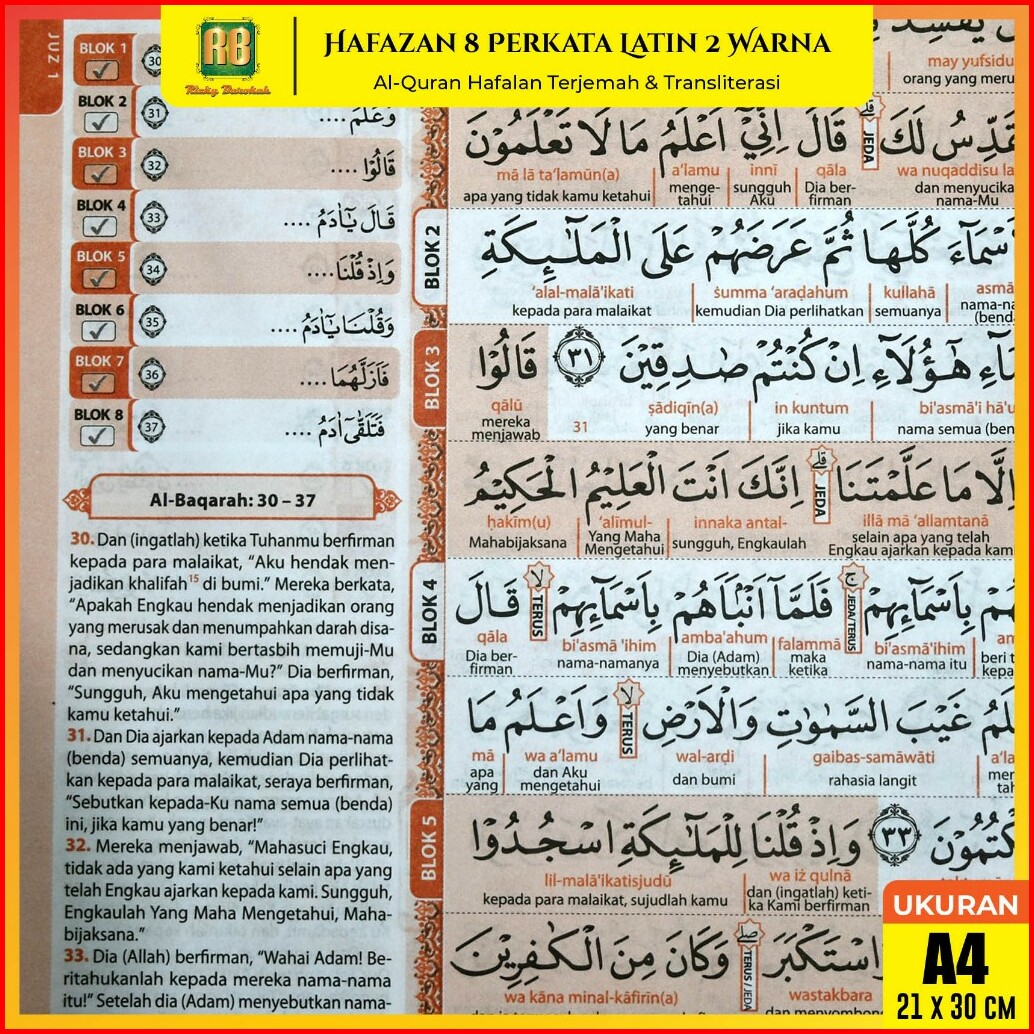 RB
Rizky Barokah
HAFAZAN 8 PERKATA LATIN 2 WARNA
Al-Quran Hafalan Terjemah & Transliterasi
JUZ 1
BLOK 1
30
BLOK 2
31 وَعَلَّمَ ....
BLOK 3
32 قَالُوْا ....
BLOK 4
33 قَالَ يٰٓاٰدَمُ ....
BLOK 5
34 وَاِذْ قُلْنَا....
BLOK 6
35 وَقُلْنَا يٰٓاٰدَمُ ....
BLOK 7
36 فَاَزَلَّهُمَا ....
BLOK 8
37 فَتَلَقّٰٓى اٰدَمُ ....
Al-Baqarah: 30 – 37
30. Dan (ingatlah) ketika Tuhanmu berfirman
kepada para malaikat, “Aku hendak men-
jadikan khalifah15 di bumi.” Mereka berkata,
“Apakah Engkau hendak menjadikan orang
yang merusak dan menumpahkan darah disa-
na, sedangkan kami bertasbih memuji-Mu
dan menyucikan nama-Mu?” Dia berfirman,
“Sungguh, Aku mengetahui apa yang tidak
kamu ketahui.”
31. Dan Dia ajarkan kepada Adam nama-nama
(benda) semuanya, kemudian Dia perlihat-
kan kepada para malaikat, seraya berfirman,
“Sebutkan kepada-Ku nama semua (benda)
ini, jika kamu yang benar!”
32. Mereka menjawab, “Mahasuci Engkau,
tidak ada yang kami ketahui selain apa yang
telah Engkau ajarkan kepada kami. Sungguh,
Engkaulah Yang Maha Mengetahui, Maha-
bijaksana.”
33. Dia (Allah) berfirman, “Wahai Adam! Be-
ritahukanlah kepada mereka nama-nama
itu!” Setelah dia (Adam) menyebutkan nama-
may yufsidu
orang yang meru
لَكَ ۗ قَالَ اِنِّيْٓ اَعْلَمُ مَا لَا تَعْلَمُوْنَ
JEDA
wa nuqaddisu la qāla innī a‘lamu mā lā ta‘lamūn(a)
dan menyucika nama-Mu Dia ber-firman sungguh Aku menge-tahui apa yang tidak kamu ketahui
BLOK 2
كُلَّهَا ثُمَّ عَرَضَهُمْ عَلَى الْمَلٰۤىِٕكَةِ
asmā kullahā ṡumma ‘araḍahum ‘alal-malā'ikati
nama-na (bend semuanya kemudian Dia perlihatkan kepada para malaikat
BLOK 3
هٰٓؤُلَاۤءِ اِنْ كُنْتُمْ صٰدِقِيْنَ ٣١ قَالُوْا
bi'asmā'i hā'u in kuntum ṣādiqīn(a) 31 qālū
nama semua (ben jika kamu yang benar mereka menjawab
اِلَّا مَا عَلَّمْتَنَا ۗ اِنَّكَ اَنْتَ الْعَلِيْمُ الْحَكِيْمُ
JEDA
illā mā ‘allamtanā innaka antal- ‘alīmul- ḥakīm(u)
selain apa yang telah Engkau ajarkan kepada kam sungguh, Engkaulah Yang Maha Mengetahui Mahabijaksana
BLOK 4
بِاَسْمَاۤىِٕهِمْ ۚ فَلَمَّآ اَنْۢبَاَهُمْ بِاَسْمَاۤىِٕهِمْ ۙ قَالَ
JEDA/TERUS TERUS
bi'asmā'ihim falammā amba'ahum bi'asmā 'ihim qāla
nama-nama itu maka ketika Dia (Adam) menyebutkan nama-namanya Dia ber-firman
غَيْبَ السَّمٰوٰتِ وَالْاَرْضِۙ وَاَعْلَمُ مَا
TERUS
gaibas-samāwāti wal-arḍi wa a‘lamu mā
rahasia langit dan bumi dan Aku mengetahui apa yang
BLOK 5
٣٣ وَاِذْ قُلْنَا لِلْمَلٰۤىِٕكَةِ اسْجُدُوْا
wa iż qulnā lil-malā'ikatisjudū
dan (ingatlah) keti-ka Kami berfirman kepada para malaikat, sujudlah kamu
اسْتَكْبَرَ ۖ وَكَانَ مِنَ الْكٰفِرِيْنَ
TERUS / JEDA
wastakbara wa kāna minal-kāfirīn(a)
dan menyombon
UKURAN
A4
21 X 30 CM